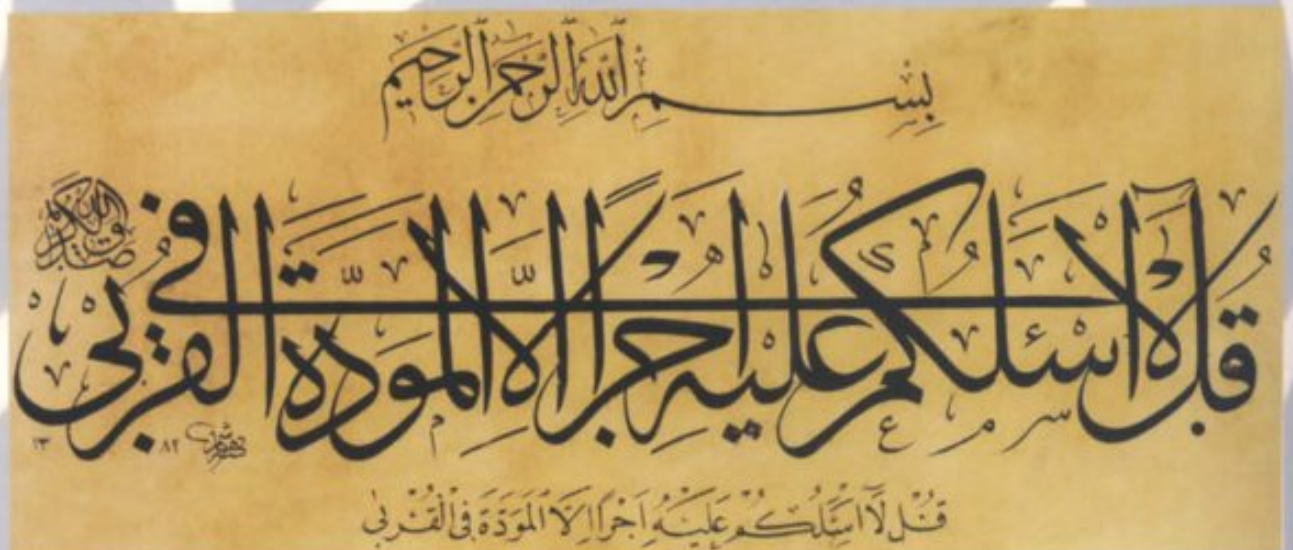 بِسْمِ اللّٰهِ الرَّحْمٰنِ الرَّحِيمِ
قُل لَّا أَسْئَلُكُمْ عَلَيْهِ أَجْرًا إِلَّا الْمَوَدَّةَ فِي الْقُرْبىٰ
صدق الله
١٣٨٢
قُلْ لَّا اَسْئَلُكُمْ عَلَيْهِ اَجْرًا اِلَّا الْمَوَدَّةَ فِى الْقُرْبٰى